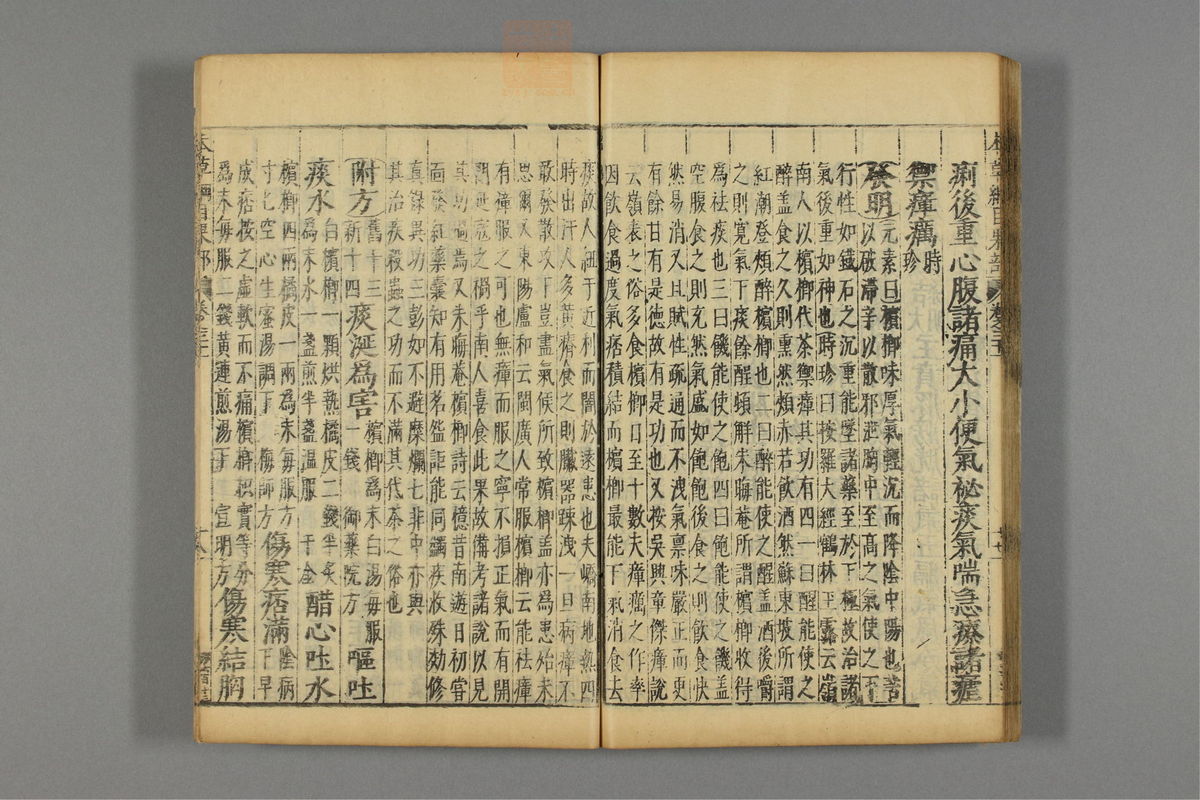 痢後重心腹諸痛大小便氣祕痰氣喘急療諸瘧
禦瘴癘時珍
發明元素曰檳榔味厚氣輕沉而降陰中陽也苦
以破滯辛以散邪泄胸中至高之氣使之下
行性如鐵石之沉重能墜諸藥至於下極故治諸
氣後重如神也時珍曰按羅大經鶴林玉露云嶺
南人以檳榔代茶禦瘴其功有四一曰醒能使之
醉盖食之久則熏然頰赤若飲酒然蘇東坡所謂
紅潮登頰醉檳榔也二曰醉能使之醒盖酒後嚼
之則寛氣下痰餘酲頓解朱晦菴所謂檳榔收得
為祛痰也三曰饑能使之飽四曰飽能使之饑盖
空腹食之則充然氣盛如飽飽後食之則飲食快
然易消又且賦性疏通而不洩氣禀味嚴正而更
有餘甘有是德故有是功也又按吳興章傑作瘴說
云嶺表之俗多食檳榔日至十數夫瘴癘之作率
因飲食過度氣痞積結而檳榔最能下氣消食去
痰故人狃于近利而闇於遠患也夫嶠南地熱四
時出汗人多黃瘠食之則臟器踈洩一旦病瘴不
敢發散攻下豈盡氣候所致檳榔盖亦為患殆未
思爾又東陽盧和云閩廣人常服檳榔云能祛瘴
有瘴服之可也無瘴服之寧不損正氣而有開
門延寇之禍乎南人喜食此果故備考諸說以見
其功過焉又朱晦菴檳榔詩云憶昔南遊日初嘗
面發紅藥囊知有用茗盌詎能同蠲疾收殊効修
真錄異功三彭如不避糜爛七非中亦與
其治疾殺蟲之功而不滿其代茶之俗也
附方舊十三新十四痰涎為害檳榔為末白湯每服一錢御藥院方嘔吐
痰水白檳榔一顆烘熱橘皮二錢半炙為末水一盞煎半盞温服千金醋心吐水
檳榔四兩橘皮一兩為末每服方寸匕空心生蜜湯調下梅師方傷寒痞滿陰病下早
成痞按之虛軟而不痛檳榔枳實等分為末每服二錢黃連煎湯下宣明方傷寒結胸